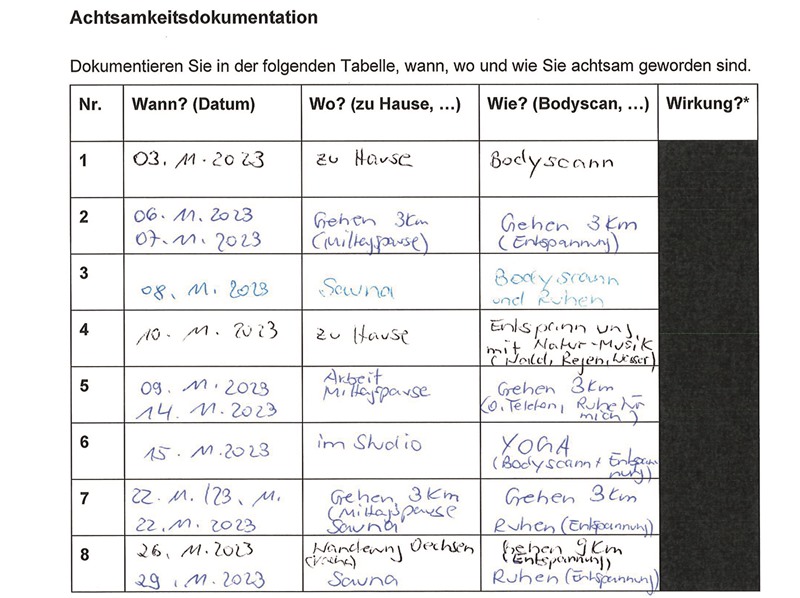 Achtsamkeitsdokumentation
Dokumentieren Sie in der folgenden Tabelle, wann, wo und wie Sie achtsam geworden sind.
Nr. Wann? (Datum) Wo? (zu Hause, …) Wie? (Bodyscan, …) Wirkung?*
1 03. 11. 2023 zu Hause Bodyscann
2 06. 11. 2023 Gehen 3km Gehen 3 Km
07. 11. 2023 (Mittagspause) (Entspannung)
3 08. 11. 2023 Sauna Bodyscann
und Ruhen
4 10. 11. 2023 zu Hause Entspann ung
mit Natur-Musik
(Wald, Regen, Wasser)
5 09. 11. 2023 Arbeit Gehen 3km
14. 11. 2023 Mittagspause (o. Telefon, Ruhe für
mich)
6 15. 11. 2023 im Studio YOGA
(Bodyscann + Entspan
nung)
7 22. 11. /23. 11. Gehen 3 Km Gehen 3 Km
(Mittagspause
22. 11. 2023 Sauna Ruhen (Entspannung)
8 26. 11. 2023 Wanderung Oechsen Gehen 9 Km
(Entspannung)
29. 11. 2023 Sauna Ruhen (Entspannung)